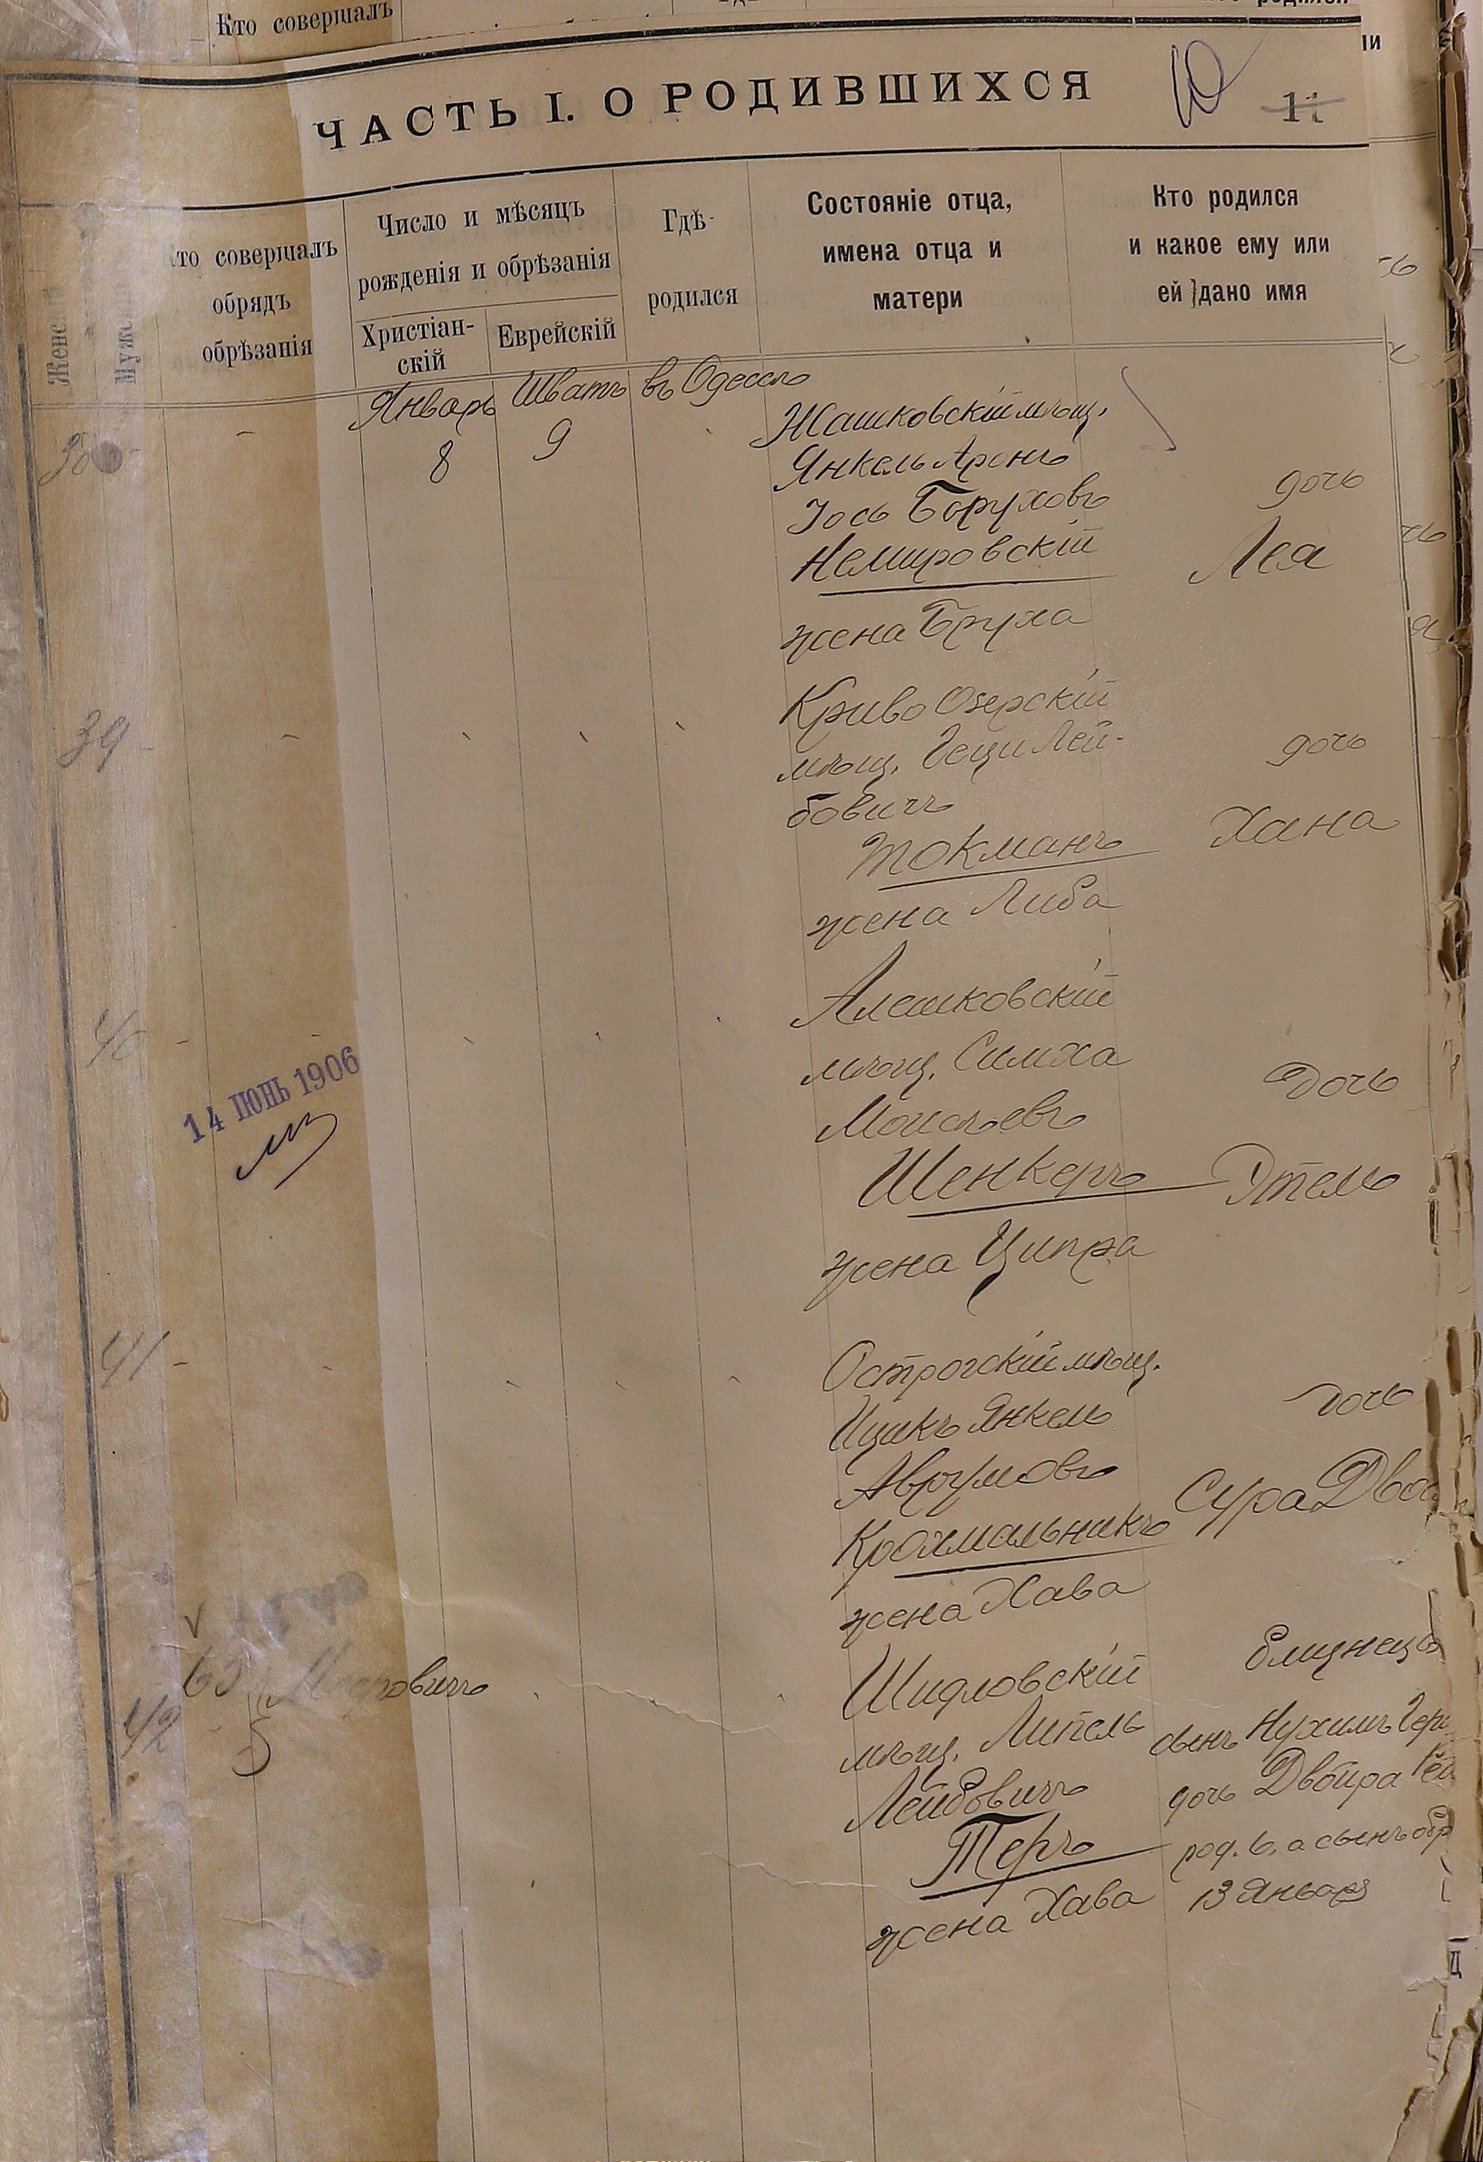 Кто совершалъ
ЧАСТЬ I. О РОДИВШИХСЯ
10 11
Женск
Мужск
то совершалъ
обрядъ
обрѣзанія
Число и мѣсяцъ
рожденія и обрѣзанія
Христіан-
скій
Еврейскій
Гдѣ
родился
Состояніе отца,
имена отца и
матери
Кто родился
и какое ему или
ей дано имя
Январь Шватъ въ Одессѣ
8 9
Жашковскій мѣщ.
Янкель Аронъ
Іось Боруховъ
Немировскій
жена Бруха
дочь
Лея
39
Криво Озерскій
мѣщ. Геци Лей-
бовичъ
Токманъ
жена Либа
дочь
Хана
40
14 ІЮНЬ 1906
Алешковскій
мѣщ. Симха
Моисѣевъ
Шенкеръ
жена Ципра
дочь
Этель
41
Острогскій мѣщ.
Ицикъ Янкель
Аврумовъ
Крохмальникъ
жена Хава
дочь
Сура Двой
42
Шидловскій
мѣщ. Липель
Лейбовичъ
Теръ
жена Хава
близнецы
сынъ Нухимъ Гер
дочь Двойра Рей
род. 6, а сынъ обр
13 Января